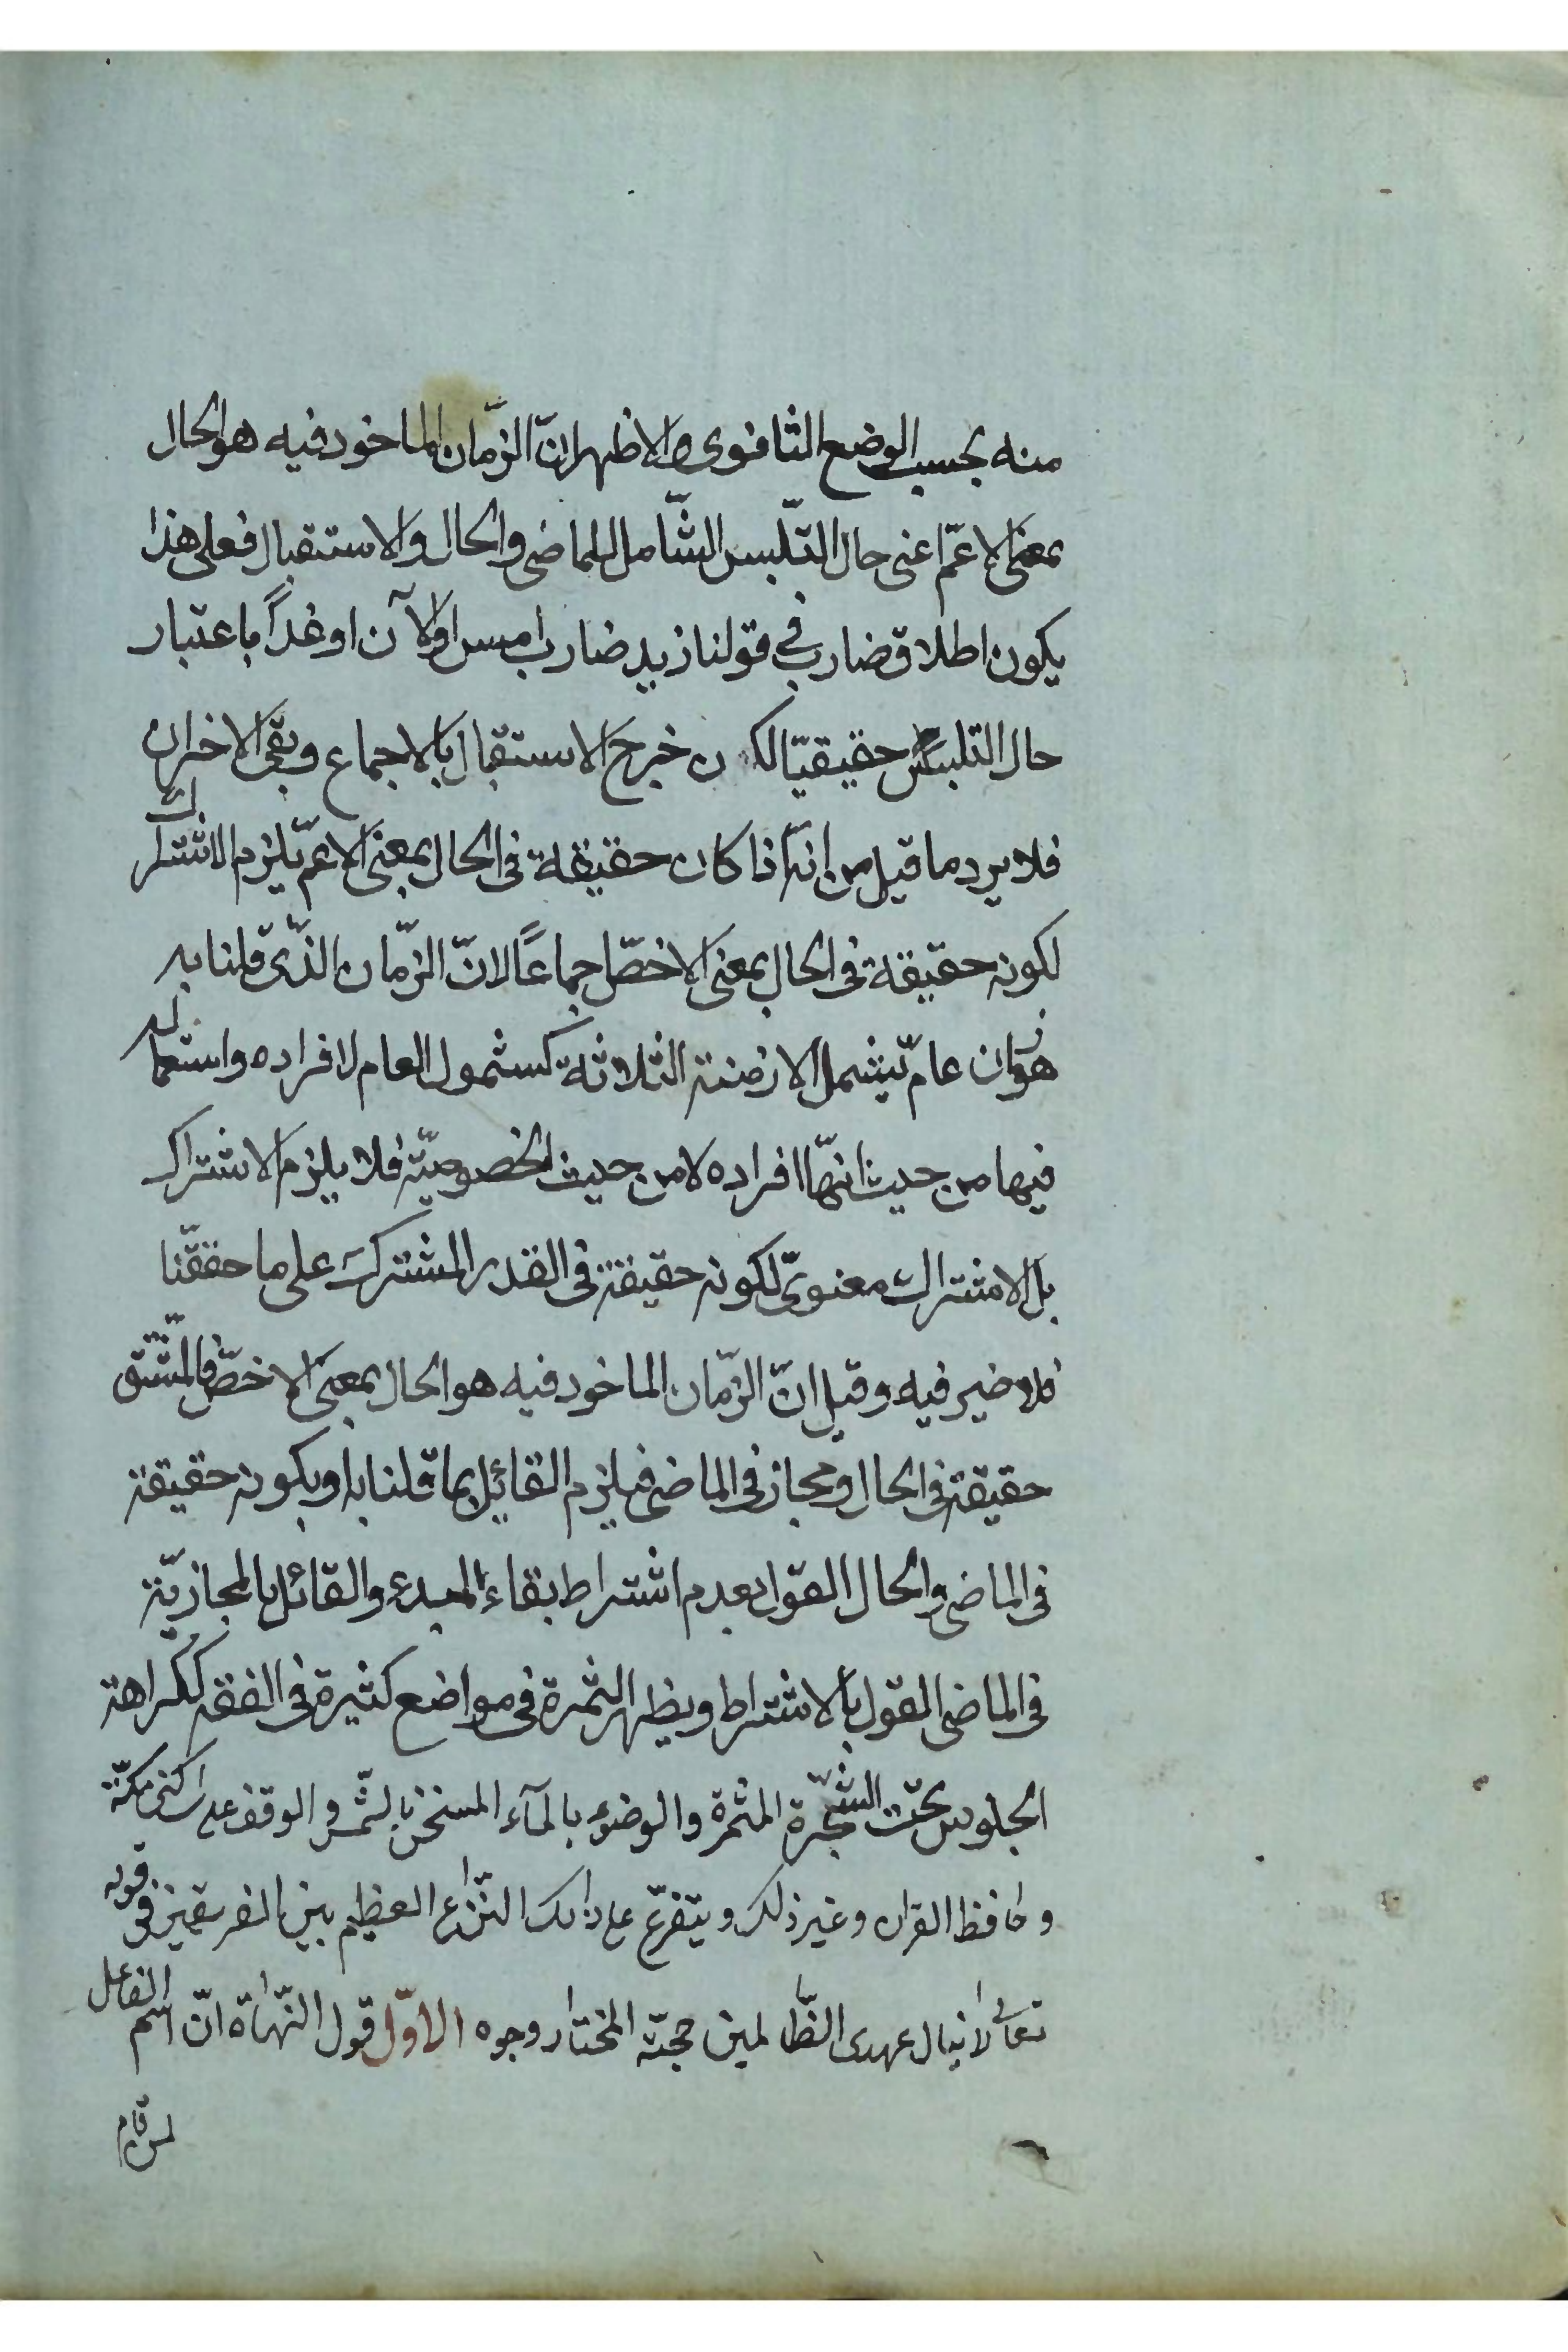 منه بحسب الوضع الثانوى والاظهر انّ الزّمان الماخود فيه هو الحال
بمعنى الاعمّ اعنى حال التّلبس الشّامل للماضى والحال والاستقبال فعلى هذا
يكون اطلاق ضارب فى قولنا زيد ضارب امس او الآن او غداً باعتبار
حال التلبس حقيقيّا لكن خرج الاستقبال بالاجماع وبقى الاخران
فلا يرد ما قيل من انّه اذا كان حقيقة فى الحال بمعنى الاعمّ يلزم الاشتراك
لكونه حقيقة فى الحال بمعنى الاخصّ اجماعاً لانّ الزّمان الذّى قلنا به
هو زمان عامّ يشمل الازمنة الثلاثة كشمول العام لافراده واستعماله
فيها من حيث انّها افراده لا من حيث الخصوصيّة فلا يلزم الاشتراك
بل الاشتراك معنوىّ لكونه حقيقة فى القدر المشترك على ما حققّنا
فلا ضير فيه وقيل انّ الزّمان الماخود فيه هو الحال بمعنى الاخصّ فالمشتقّ
حقيقة فى الحال ومجاز فى الماضى فيلزم القائل بما قلنا به او بكونه حقيقة
فى الماضى والحال القول بعدم اشتراط بقاء المبدء والقائل بالمجازيّة
فى الماضى القول بالاشتراط ويظهر الثمرة فى مواضع كثيرة فى الفقه ككراهة
الجلوس تحت الشّجرة المثمرة والوضوء بالمآء المسخن بالشّمس والوقف على ساكنى مكّة
وحافظ القران وغير ذلك ويتفرّع على ذلك النّزاع العظيم بين الفريقين فى قوله
تعالى لا ينال عهدى الظّالمين حجّة المختار وجوه الاوّل قول النّحاة انّ اسم الفاعل
لمن قام